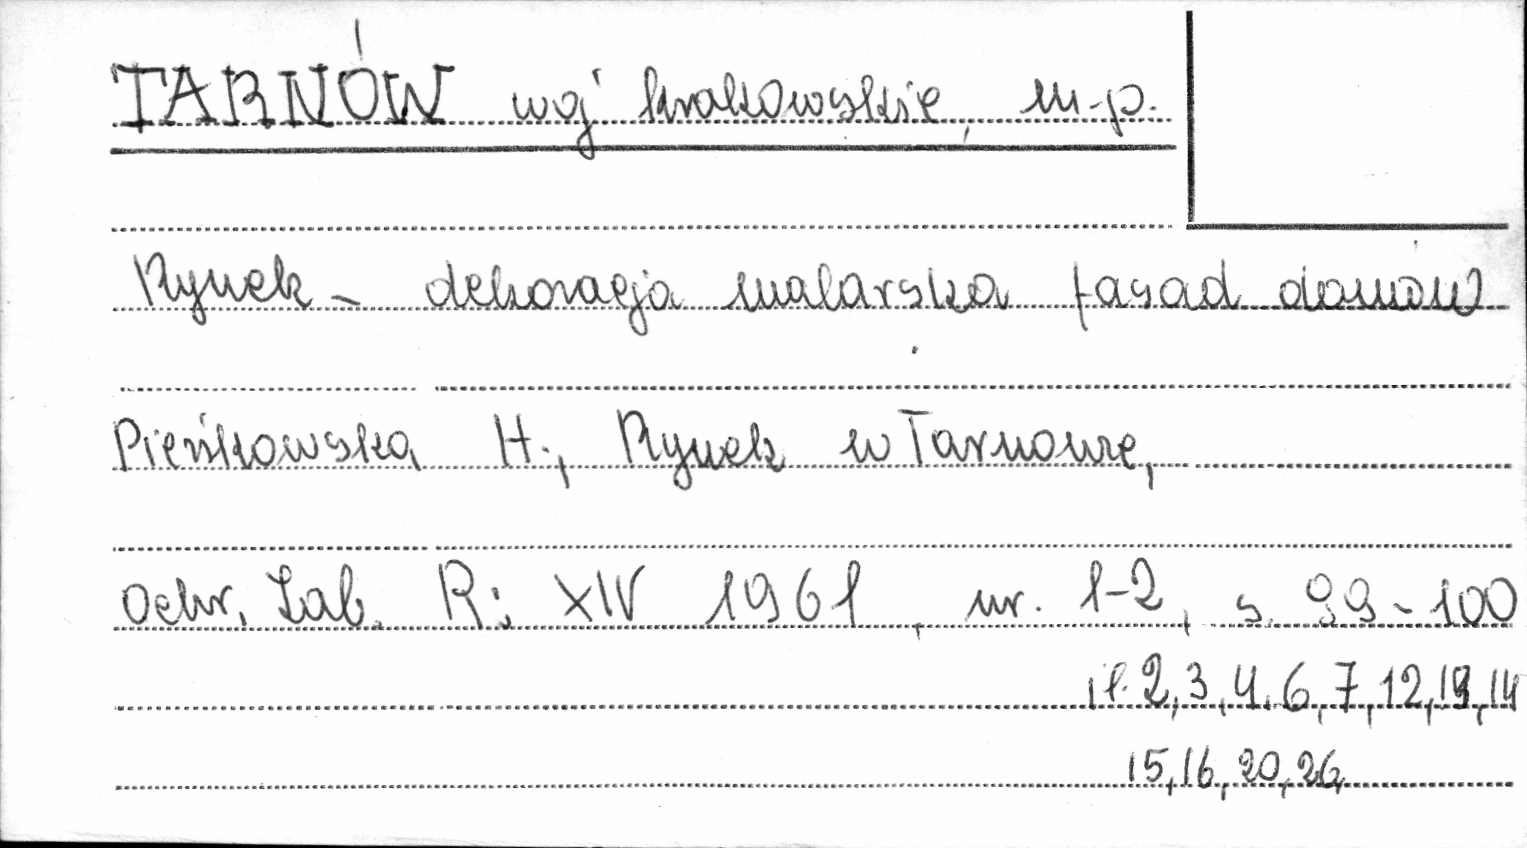 TARNÓW woj krakowskie, m.p.
Rynek - dekoracja malarska fasad domów
Pieńkowska H., Rynek w Tarnowie,
Ochr. Zab. R: XIV 1961, nr. 1-2, s. 99-100
il. 2,3,4,6,7,12,13,14
15,16,20,26